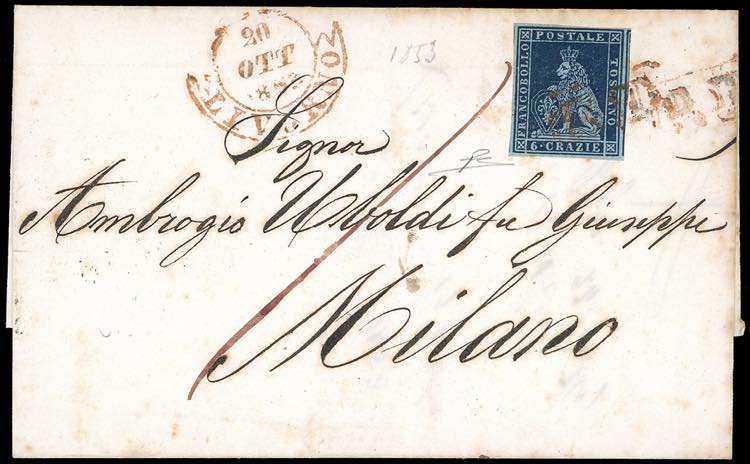 20
OTT
LIVORNO
1853
FRANCOBOLLO POSTALE TOSCANO
6 · CRAZIE
Signor
Ambrogio Uboldi fu Giuseppe
Milano